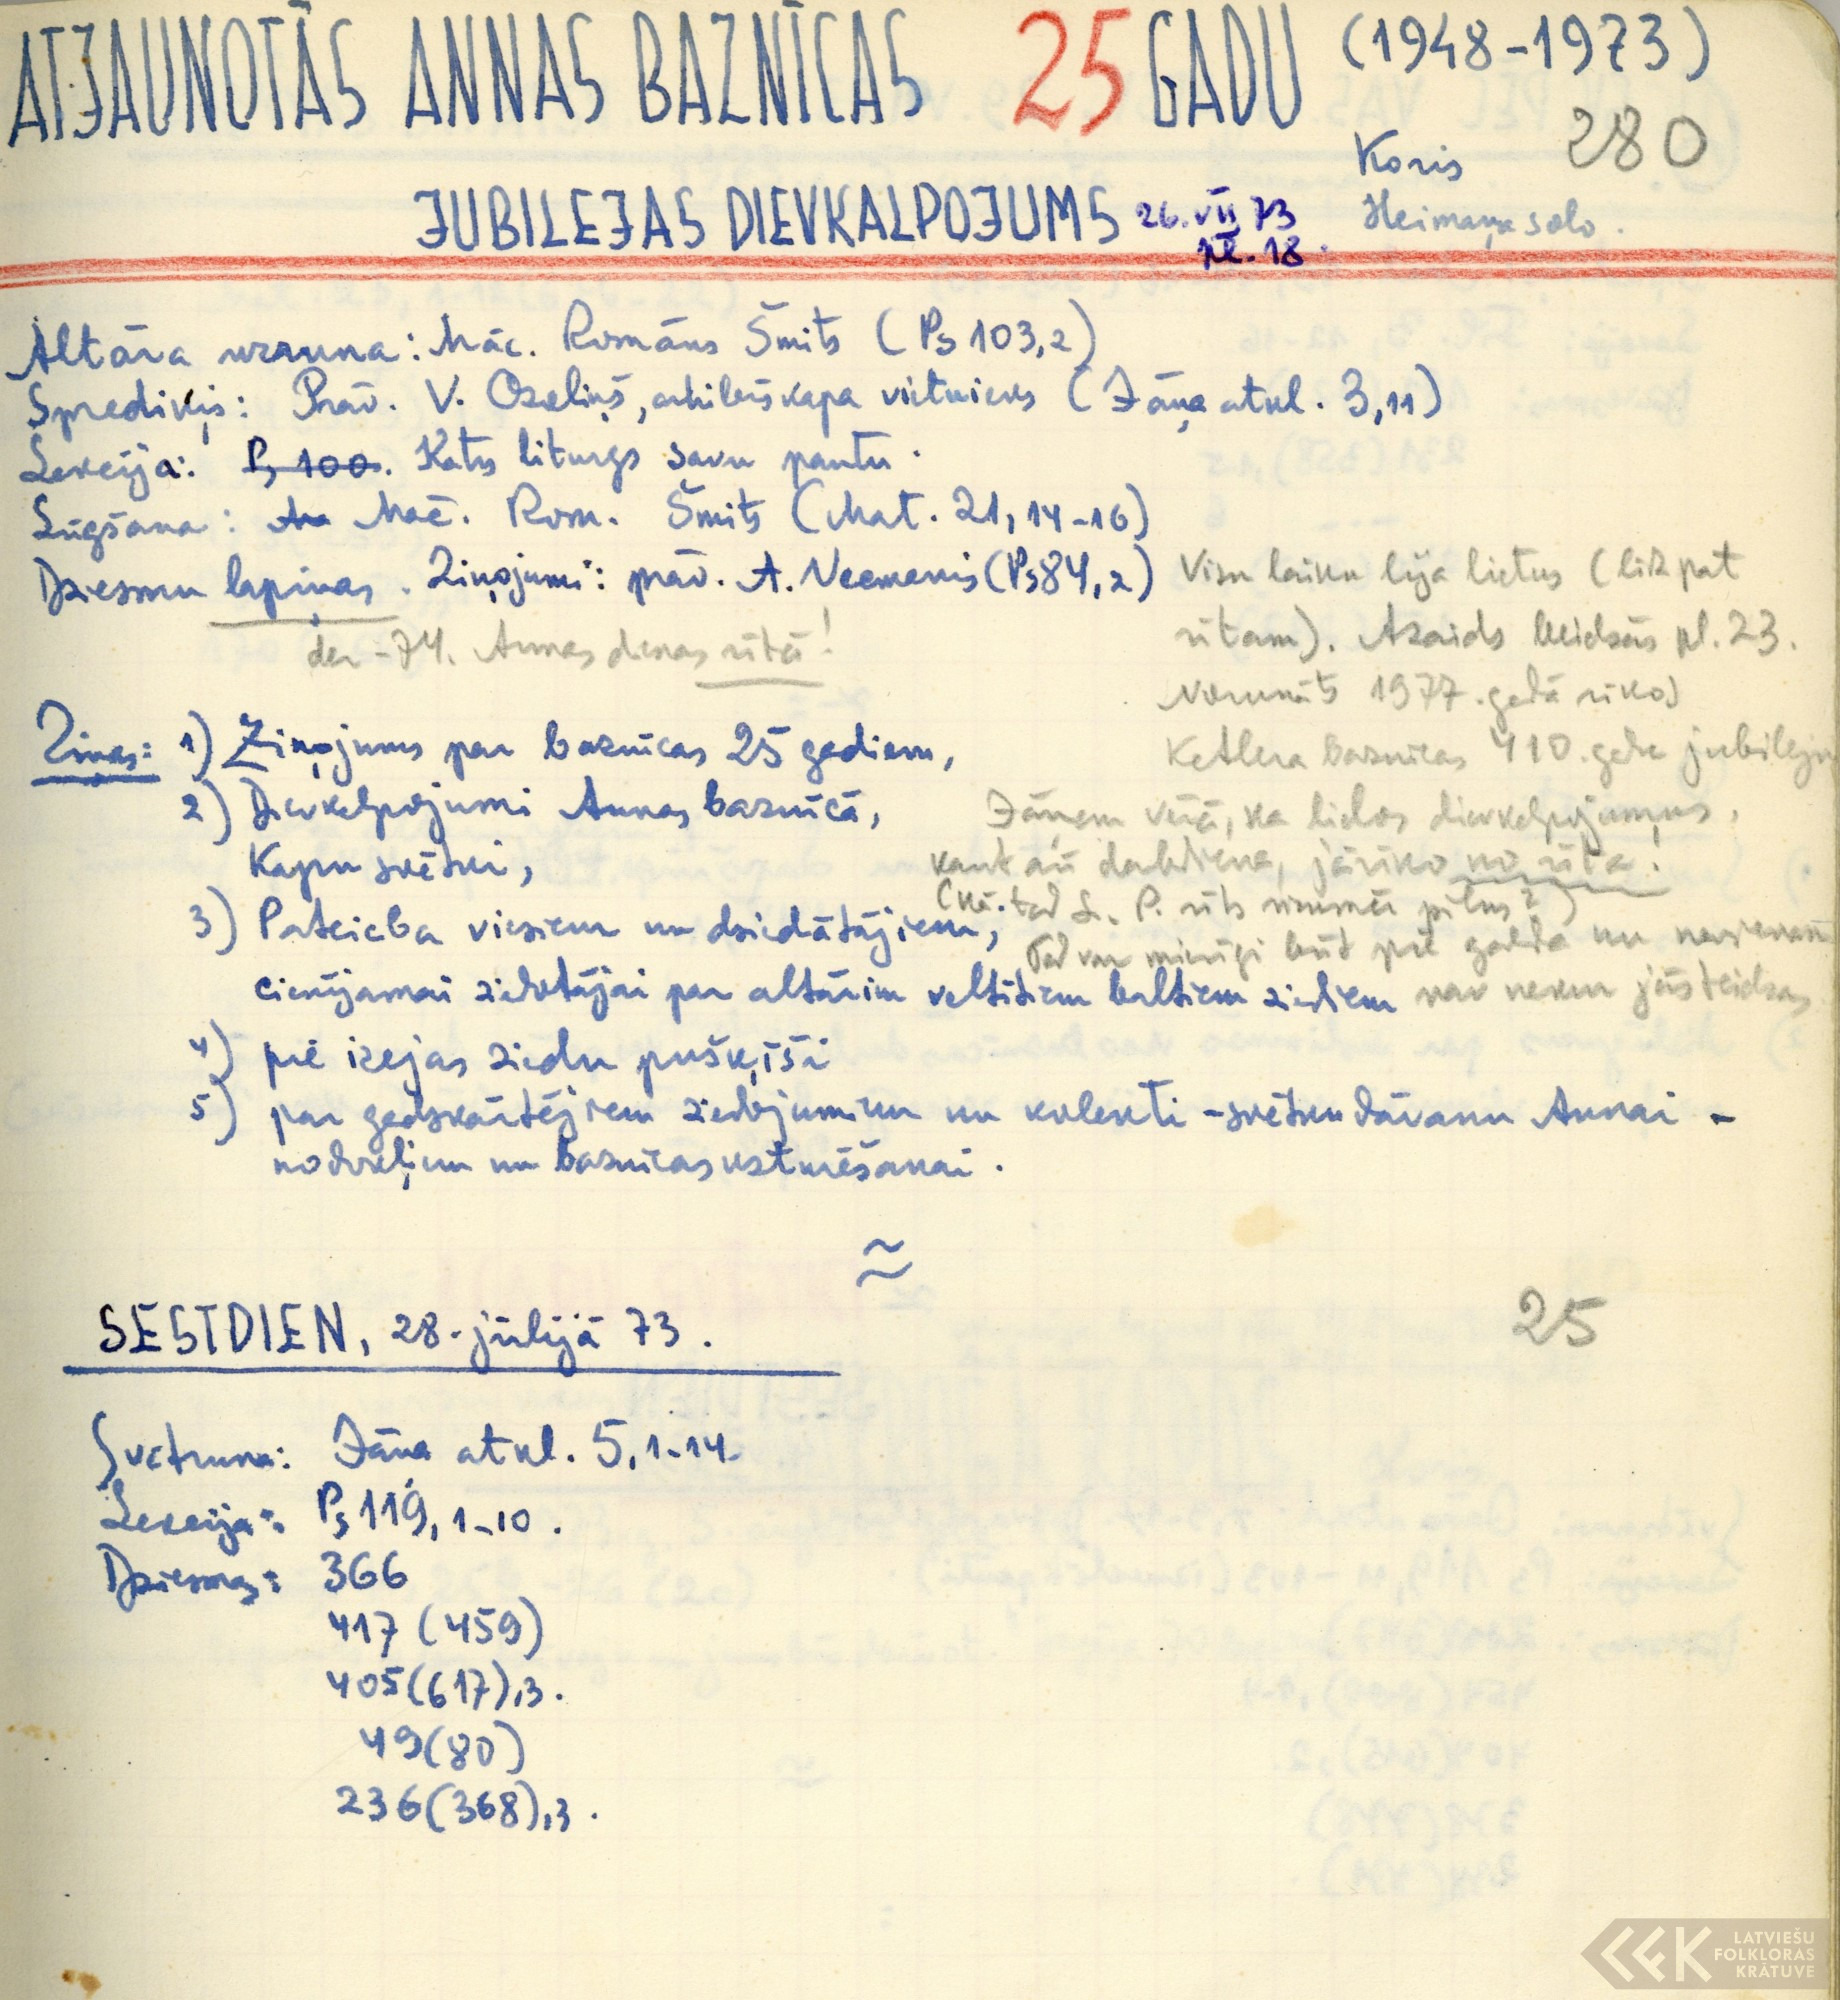 ATJAUNOTĀS ANNAS BAZNĪCAS 25 GADU (1948-1973)
280
Koris
JUBILEJAS DIEVKALPOJUMS 26. VII 73
pl. 18.
Heimaņa solo.
Altāra uzruna: Māc. Romāns Šmits (Ps 103,2)
Sprediķis: Prāv. V. Ozoliņš, arhibīskapa vietnieks (Jāņa atkl. 3,11)
Lekcija: Ps 100. Katrs liturgs savu pantu.
Lūgšana: Māc. Rom. Šmits (Mat. 21, 14-16)
Dziesmu lapiņas. Ziņojumi: prāv. A. Neemanis (Ps 84,2)
der -74. Annas dienas rītā!
Visu laiku lija lietus (līdz pat
rītam). Azaids beidzās pl. 23.
Norunāts 1977. gadā rīkot
Ketlera baznīcas 410. gadu jubileju
Ziņas: 1) Ziņojums par baznīcas 25 gadiem,
2) Dievkalpojumi Annas baznīcā,
Kapu svētki,
Jāņem vērā, ka lielos dievkalpojumus,
kaut arī darbdiena, jārīko no rīta!
(Kā tad L. P. rīts vienmēr pilns?)
3) Pateicība viesiem un dziedātājiem,
Tad var mierīgi būt pie galda un nevienam
cienījamai ziedotājai par altārim veltītiem baltiem ziediem nav nekur jāsteidzas
4) pie izejas ziedu pušķīši
5) par gadskārtējiem ziedojumiem un kolekti - svētku dāvanu Annai -
nodokļiem un baznīcas uzturēšanai.
SESTDIEN, 28. jūlijā 73.
25
Svētruna: Jāņa atkl. 5, 1-14.
Lekcija: Ps 119, 1-10.
Dziesmas: 366
417 (459)
405 (617), 3.
49 (80)
236 (368), 3.
LATVIEŠU
FOLKLORAS
KRĀTUVE